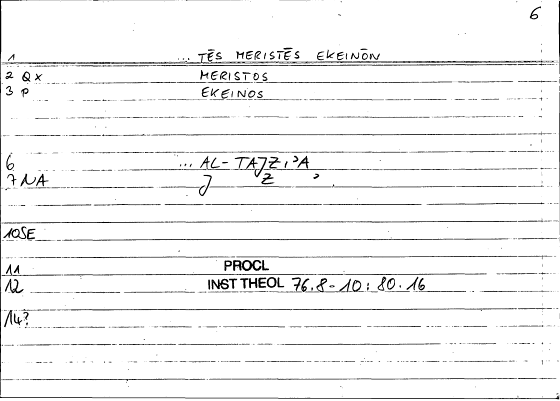 6
1 ... TĒS MERISTĒS EKEINŌN
2 Q x MERISTOS
3 P EKEINOS
6 ... AL-TAJZI'A
7 NA J Z '
10 SE
11 PROCL
12 INST THEOL 76.8-10: 80.16
14?